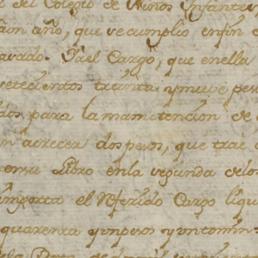 del Colegio de Niños Infantes
dho año, que se cumplio en fin de
avado. Y al Cargo, que en ella
setecientos treinta y nueve pes
dos para la manutencion de
an acrecer dos pesos, que trae
en su Libro en la segunda de los
importa el Referido Cargo liqu
quarenta y un pesos y un tomin